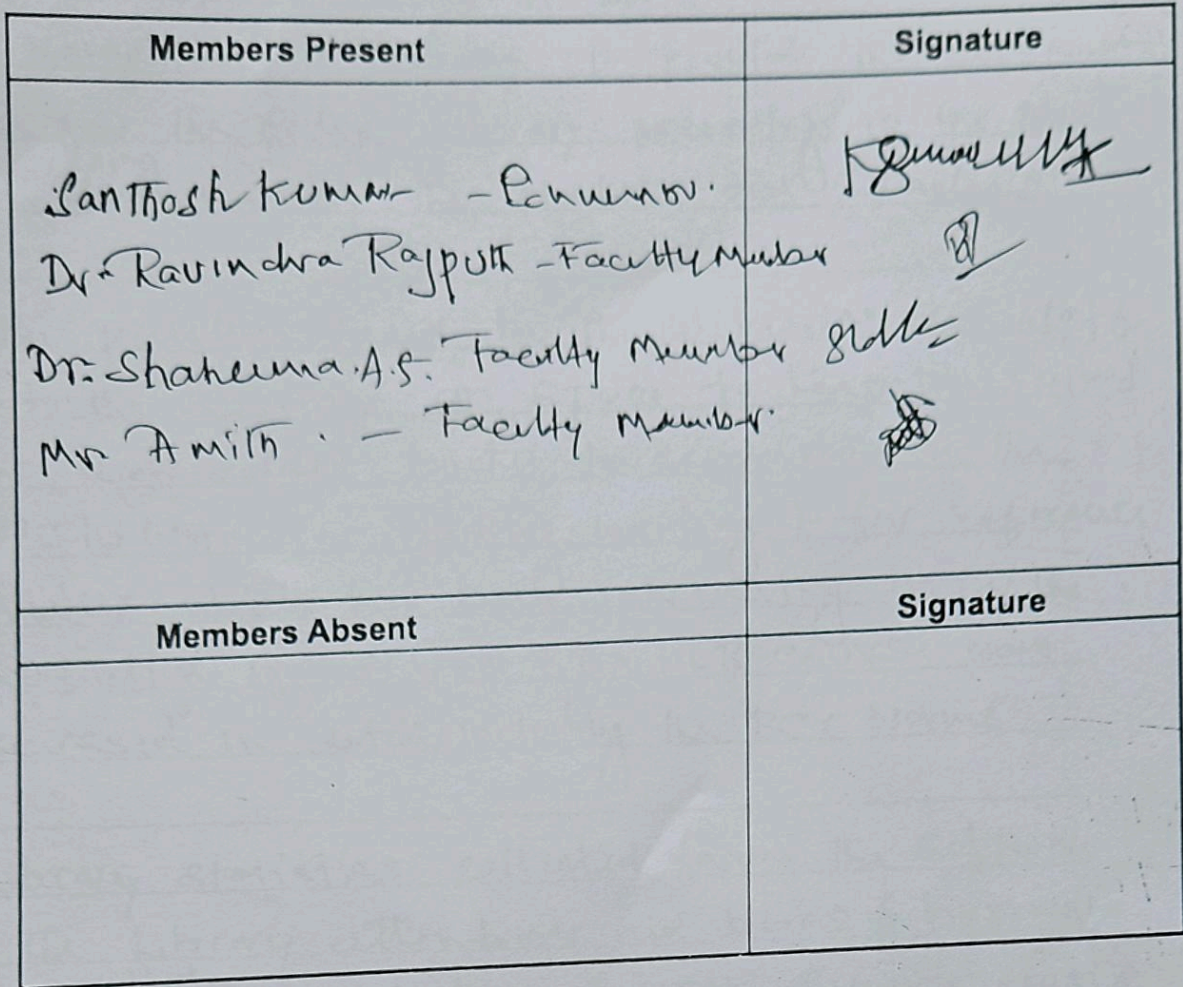 Members Present Signature
Santhosh Kumar - Convenor.
Dr. Ravindra Rajputh - Faculty Member
Dr. Shaheena.A.S. Faculty Member
Mr Amith. - Faculty Member.
Members Absent Signature